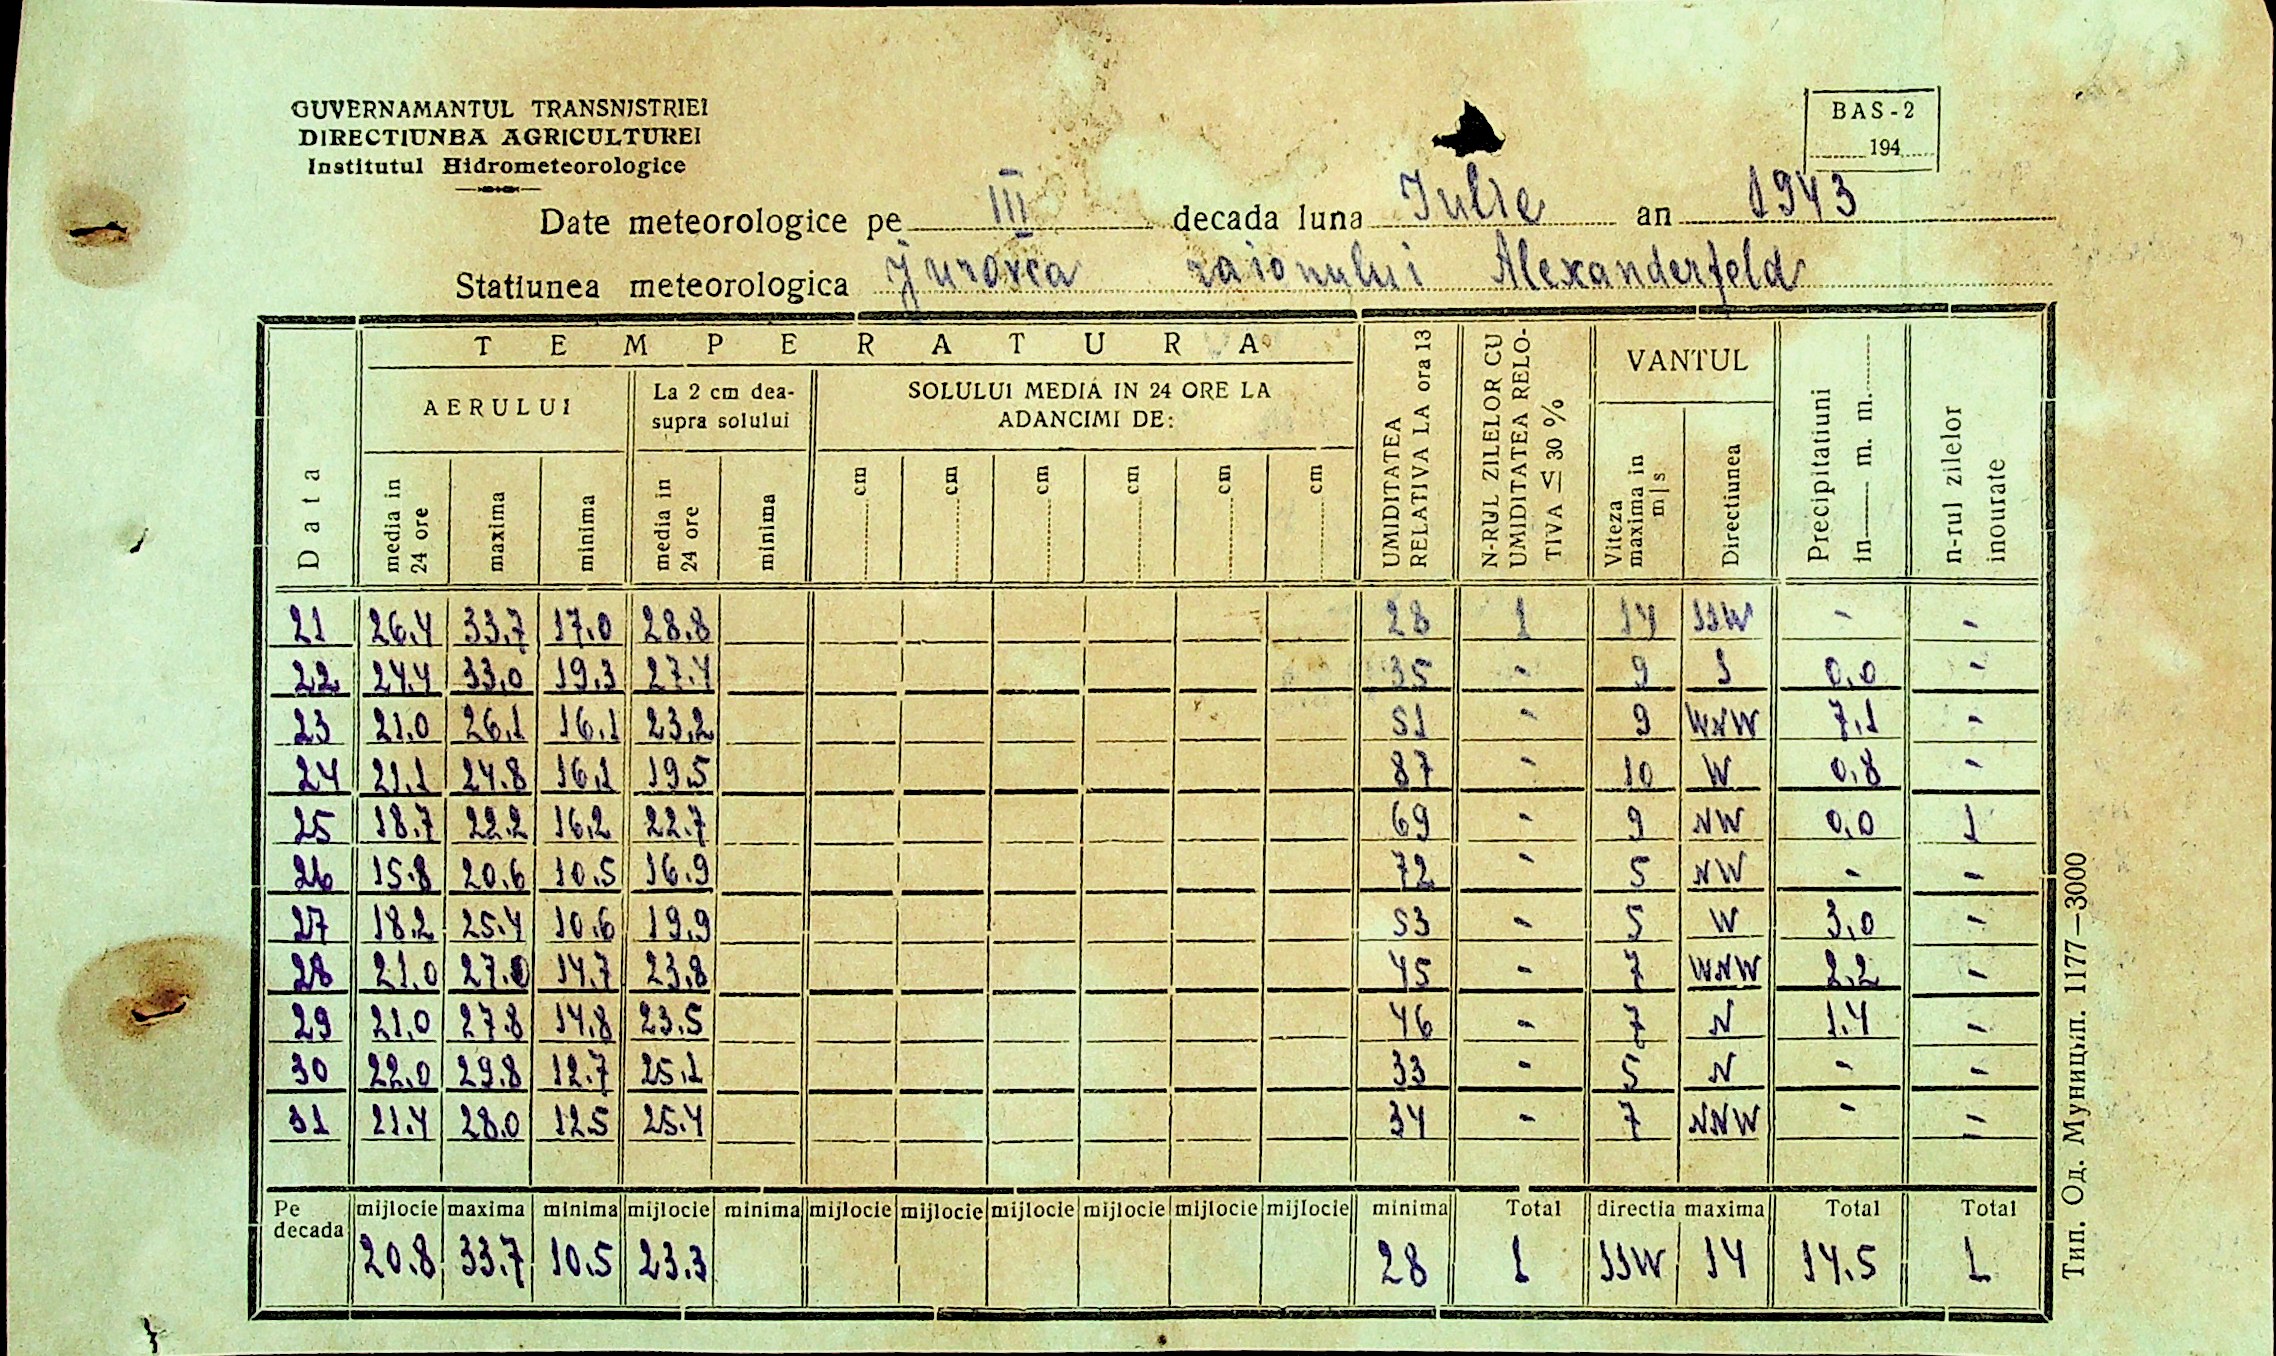 GUVERNAMANTUL TRANSNISTRIEI
DIRECTIUNEA AGRICULTUREI
Institutul Hidrometeorologice
BAS-2
194
Date meteorologice pe III decada luna Iulie an 1943
Statiunea meteorologica Jurovca raionului Alexanderfeld
TEMPERATURA
AERULUI
La 2 cm dea-
supra solului
SOLULUI MEDIA IN 24 ORE LA
ADANCIMI DE:
VANTUL
Data
media in
24 ore
maxima
minima
media in
24 ore
minima
cm cm cm cm cm cm
UMIDITATEA
RELATIVA LA ora 13
N-RUL ZILELOR CU
UMIDITATEA RELO-
TIVA ≤ 30 %
Viteza
maxima in
m|s
Directiunea
Precipitatiuni
in m. m.
n-rul zilelor
inourate
21 26.4 33.7 17.0 28.8 28 1 14 SSW - -
22 24.4 33.0 19.3 27.4 35 - 9 S 0.0 -
23 21.0 26.1 16.1 23.2 51 - 9 WNW 7.1 -
24 21.1 24.8 16.1 19.5 87 - 10 W 0.8 -
25 18.7 22.2 16.2 22.7 69 - 9 NW 0.0 1
26 15.8 20.6 10.5 16.9 72 - 5 NW - -
27 18.2 25.4 10.6 19.9 53 - 5 W 3.0 -
28 21.0 27.0 14.7 23.8 45 - 7 WNW 2.2 -
29 21.0 27.8 14.8 23.5 46 - 7 N 1.4 -
30 22.0 29.8 12.7 25.1 33 - 5 N - -
31 21.4 28.0 12.5 25.4 34 - 7 NNW - -
Pe
decada
mijlocie maxima minima mijlocie minima mijlocie mijlocie mijlocie mijlocie mijlocie mijlocie minima Total directia maxima Total Total
20.8 33.7 10.5 23.3 28 1 SSW 14 14.5 1
Тип. Од. Муницып. 1177—3000